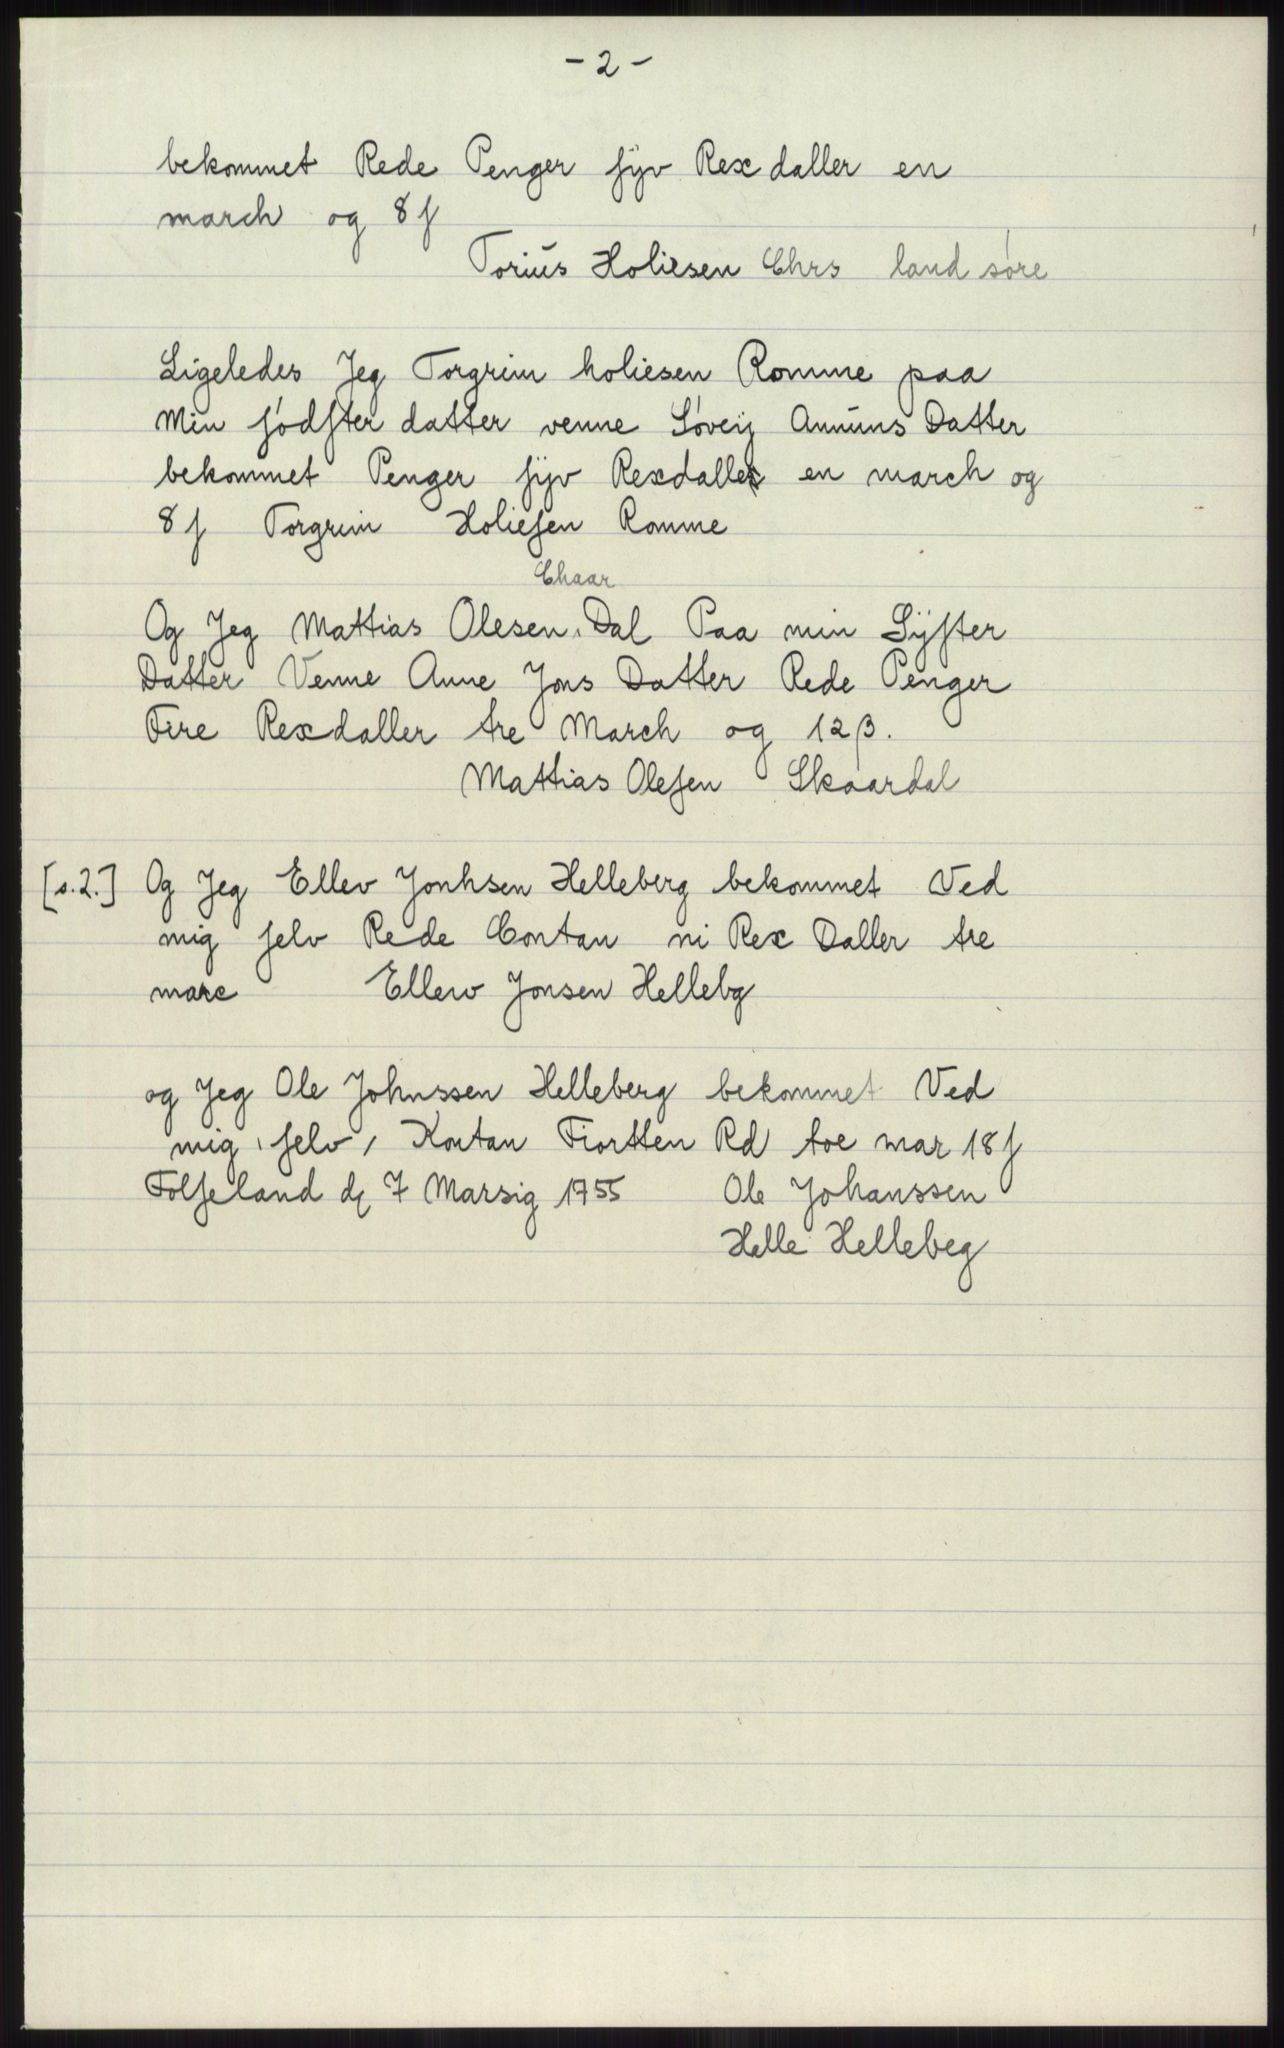 - 2 -
bekommet Rede Penger ſyv Rex daller en
march og 8 ſ
Toriús Holiesen Chrs land søre
Ligeledes Jeg Torgrim holiesen Romme paa
Min ſødſter datter venne Søveij Annuns Datter
bekommet Penger ſyv Rexdaller en march og
8 ſ Torgrim Holieſen Romme
Chaar
Og Jeg Mattias Olesen, Dal Paa min Sÿſter
Datter Venne Anne Jons Datter Rede Penger
Fire Rexdaller tre March og 12 β.
Mattias Oleſen Skaardal
[s.2.] Og Jeg Ellev Jonhsen Helleberg bekommet Ved
mig ſelv Rede Contan ni Rex Daller tre
marc Ellew Jonsen Hellebg
og Jeg Ole Johnssen Helleberg bekommet Ved
mig, ſelv, Kontan Fiortten Rd toe mar 18 ſ
Folſeland d 7 Marsig 1755 Ole Johanssen
Helle Hellebeg